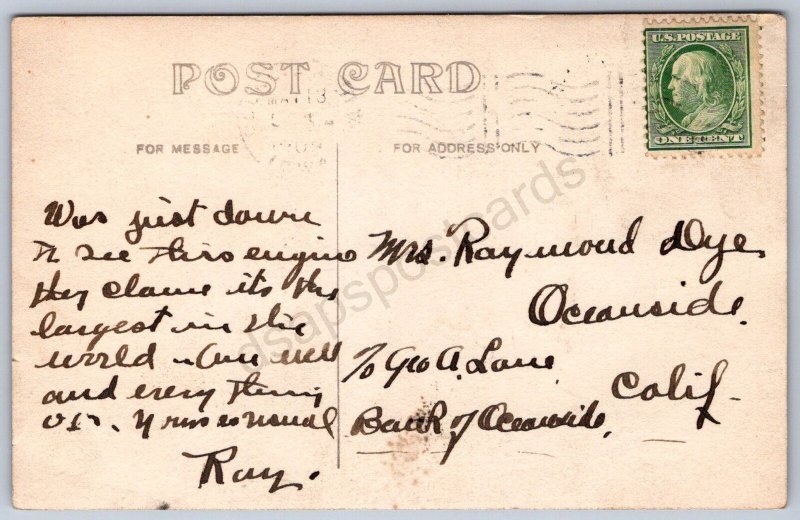 U.S. POSTAGE
ONE CENT
POST CARD
MAY 13
1909
FOR MESSAGE
FOR ADDRESS ONLY
Was just down
to see this engine
they claim its the
largest in the
world. Am well
and every thing
O.K. Yours as usual
Ray.
Mrs. Raymond Dye,
Oceanside,
℅ Geo A. Lane
Calif.
Bank of Oceanside,
dsapspostcards